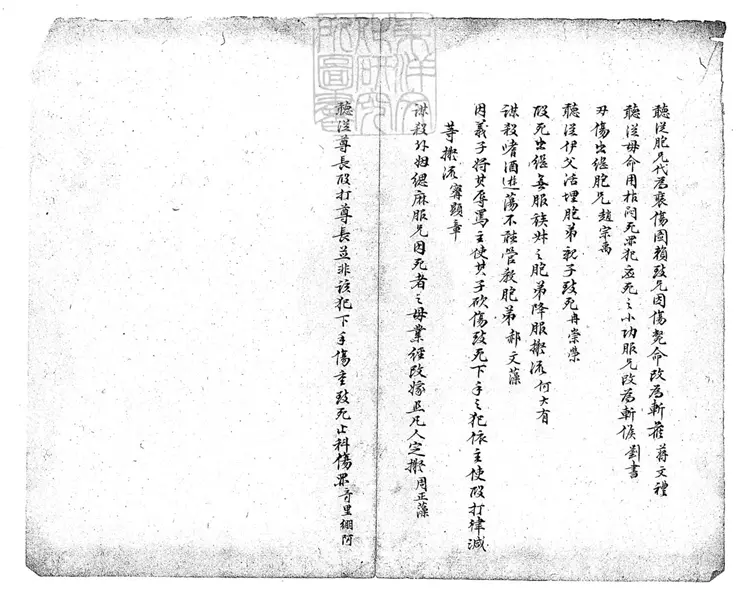 聽從胞兄代為裝傷圖賴致兄因傷斃命改為斬
蔣文禮
聽從母命用枯悶死罪犯應死之小功服兄改為斬候 劉書
刃傷出繼胞兄 趙宗禹
聽從伊父活埋胞弟親子致死 冉崇榮
毆死出繼無服族姊之胞弟降服擬流 何大有
謀殺嗜酒遊蕩不聽管教胞弟 郝文藻
因義子將其辱罵主使其子砍傷致死下手之犯依主使毆打律減
等擬流 寗顯章
謀殺外姻緦麻服兄因死者之母業經改嫁照凡人定擬 周正藻
聽從尊長毆打尊長並非該犯下手傷重致死止科傷罪 奇里綳阿
東洋文
化研究
所圖書